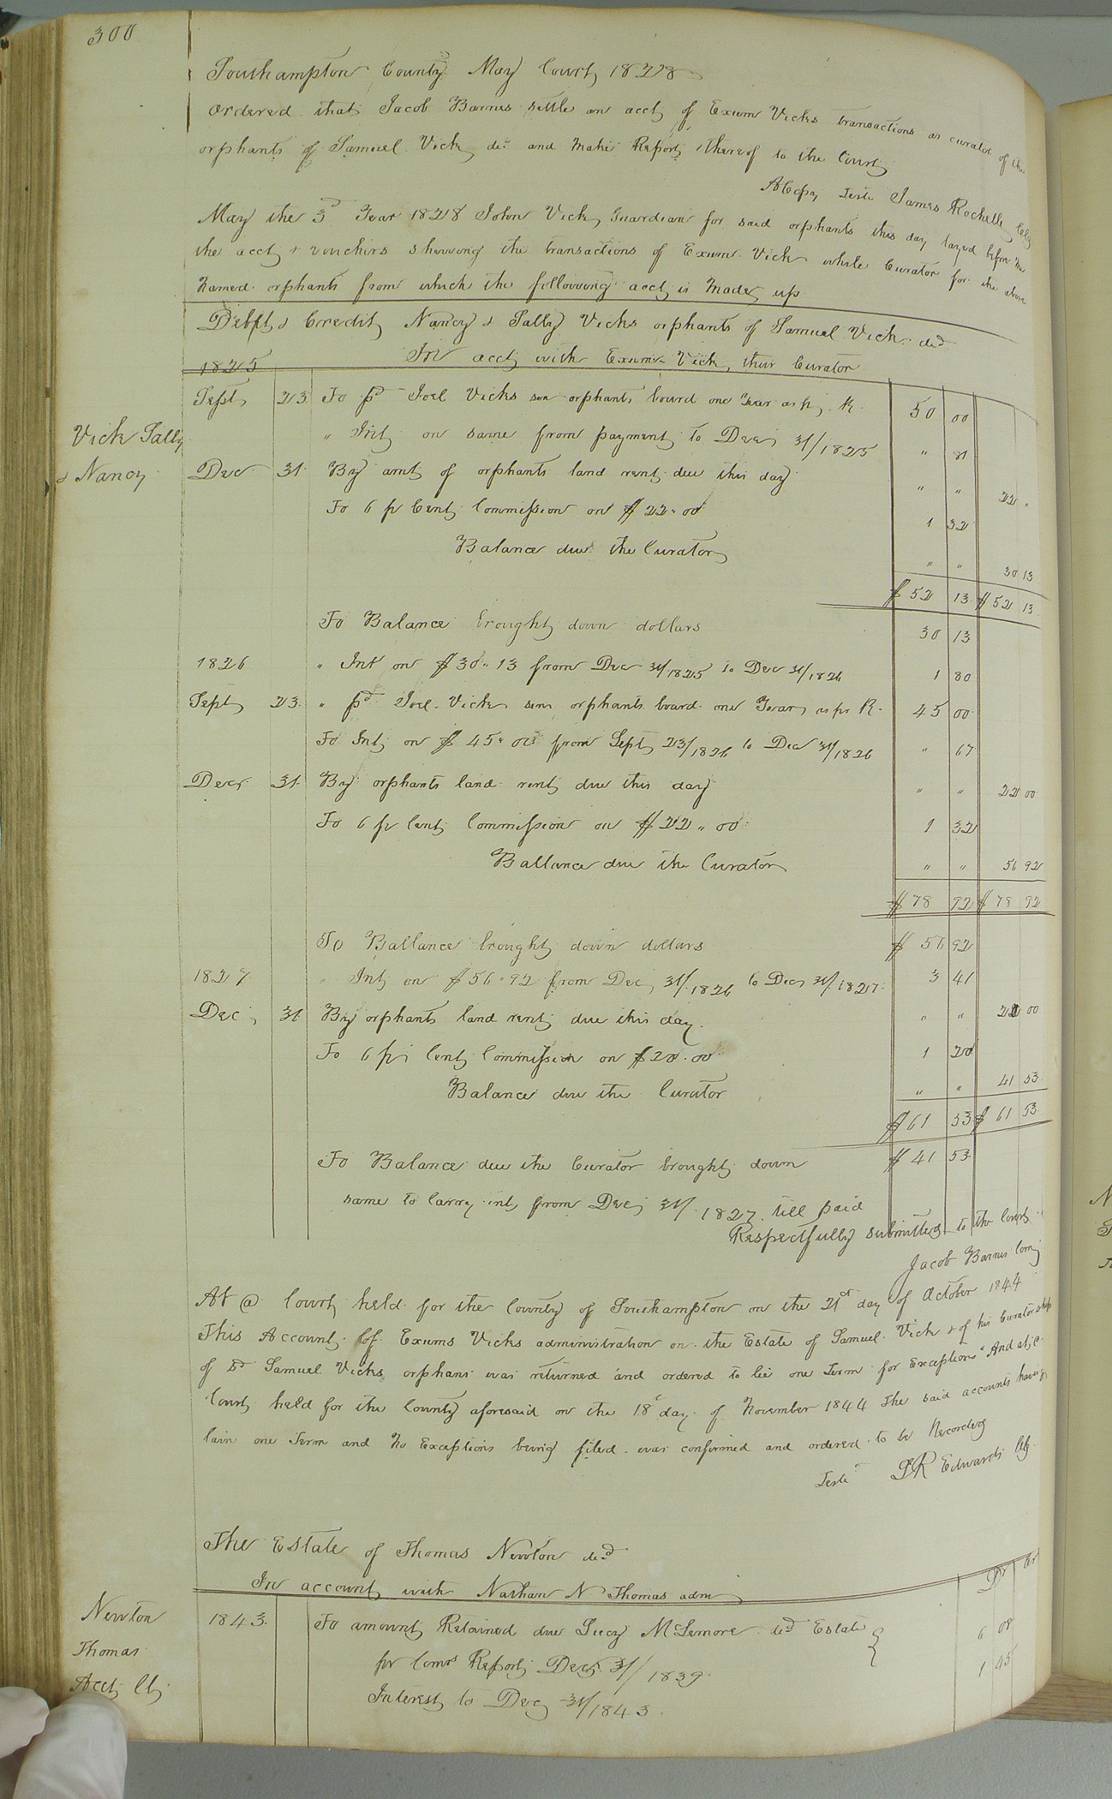 300
Southampton County May Court 1828
Ordered that Jacob Barnes settle an acct of Exum Vicks transactions as curator of the
orphants of Samuel Vick decd and make Report thereof to the Court
A Copy Teste James Rochelle
May the 3d Year 1828 John Vick, Guardian for said orphants this day layed before me
the acct & vouchers shewing the transactions of Exum Vick while Curator for the above
Named orphants from which the following acct is made up
Debt & Credit Nancy & Sally Vicks orphants of Samuel Vick decd
In acct with Exum Vick, their Curator
1825
Sept 23 To pd Joel Vicks orphants bourd one Year as pr R. 50 00
Vick Sally
& Nancy
" Int on same from payment to Dec 31/1825 " 81
Dec 31 By amt of orphants land rent due this day " " 22 "
To 6 pr Cent Commission on $22.00 1 32
Balance due the Curator " " 30 13
$52 13 $52 13
To Balance brought down dollars 30 13
1826 " Int on $30.13 from Dec 31/1825 to Dec 31/1826 1 80
Sept 23 " pd Joel Vick orphants board one Year as pr R. 45 00
To Int on $45.00 from Sept 23/1826 to Dec 31/1826 " 67
Decr 31 By orphants land rent due this day " " 22 00
To 6 pr Cent Commission on $22.00 1 32
Ballance due the Curator " " 56 92
$78 92 $78 92
To Ballance brought down dollars $56 92
1827 " Int on $56.92 from Dec 31/1826 to Dec 31/1827 3 41
Dec 31 By orphants land rent due this day. " " 20 00
To 6 pr Cent Commission on $20.00 1 20
Balance due the Curator " " 41 53
$61 53 $61 53
To Balance due the Curator brought down $41 53
same to carry int from Dec 31/1827 till paid
Respectfully submitted to the Court
Jacob Barnes Com
At @ Court held for the County of Southampton on the 21st day of October 1844
This Account of Exums Vicks administration on the Estate of Samuel Vick & of his Curatorship
of sd Samuel Vicks orphans was returned and ordered to lie one Term for Exceptions And at @
Court held for the County aforesaid on the 18th day of November 1844 The said accounts having
lain one Term and No Exceptions being filed was confirmed and ordered to be Recorded
Teste LR Edwards Clk
The Estate of Thomas Newton decd
In account with Nathan N Thomas adm Dr Cr
Newton
Thomas
Acct
1843 To amount Retained due Lucy McLemore decd Estate
pr Comrs Report Decr 31/1839 6 08
Interest to Dec 31/1843 1 45